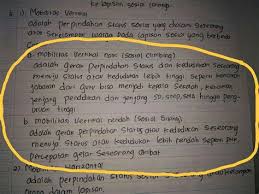 ke lapisan sosial lainnya
b. 1) Mobilitas Vertikal
adalah perpindahan status sosial yang dialami seseorang
atau sekelompok warga pada lapisan sosial yang berbeda
a. mobilitas vertikal naik (sosial climbing)
adalah gerak perpindahan status dan kedudukan seseorang
menuju status atau kedudukan lebih tinggi seperti kenaikan
jabatan dari guru bisa menjadi kepala sekolah,
jenjang pendidikan dari jenjang SD, SMP, SMA hingga
tinggi
b. mobilitas vertikal rendah (sosial sinking)
adalah gerak perpindahan status atau kedudukan seseorang
menuju status atau kedudukan lebih rendah seperti
gelar seseorang
2) Mobilitas Horizontal
adalah perpindahan status sosial seseorang
dalam lapisan